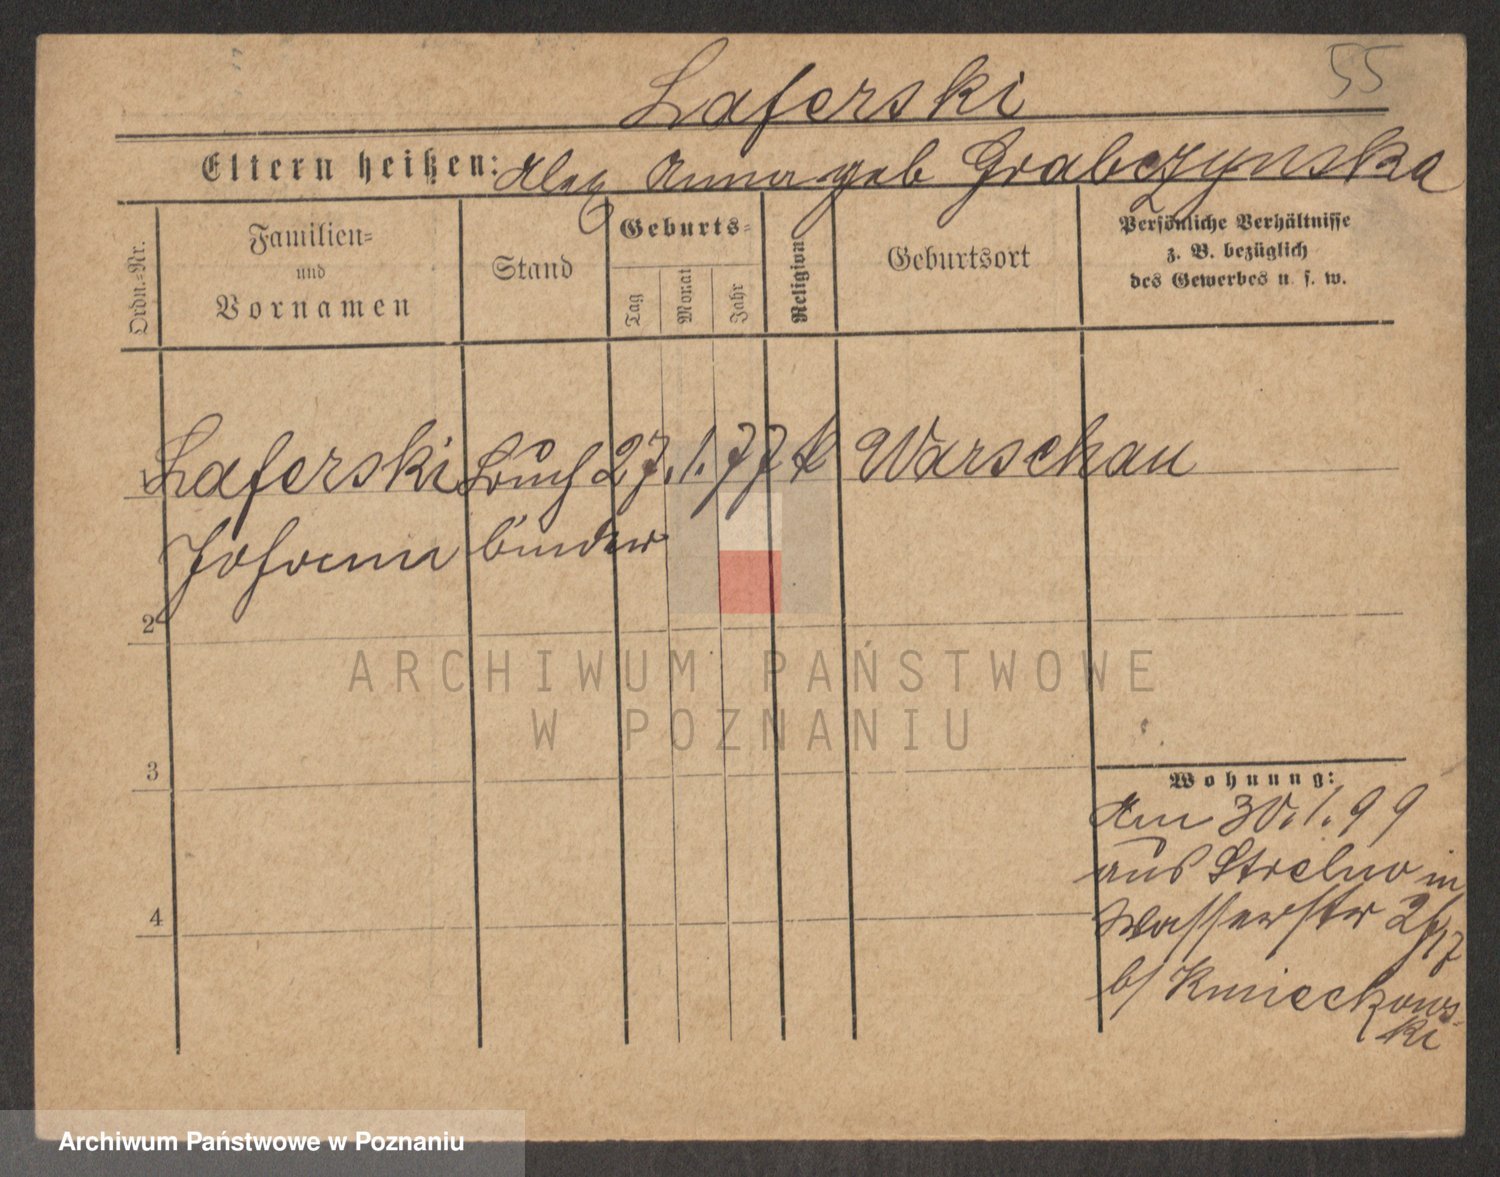 55
Laferski
Eltern heißen: Alex Anna geb Grabczynska
Ordn.-Nr.
Familien-
und
Vornamen
Stand
Geburts-
Tag
Monat
Jahr
Religion
Geburtsort
Persönliche Verhältnisse
z. B. bezüglich
des Gewerbes u. s. w.
Laferski Buch 27. 1. 77 k Warschau
Johann binder
2
3
4
Wohnung:
Am 30. 1. 99
aus Strelno in
Wasserstr
b/ Kmieckows-
ki
ARCHIWUM PAŃSTWOWE
W POZNANIU
Archiwum Państwowe w Poznaniu